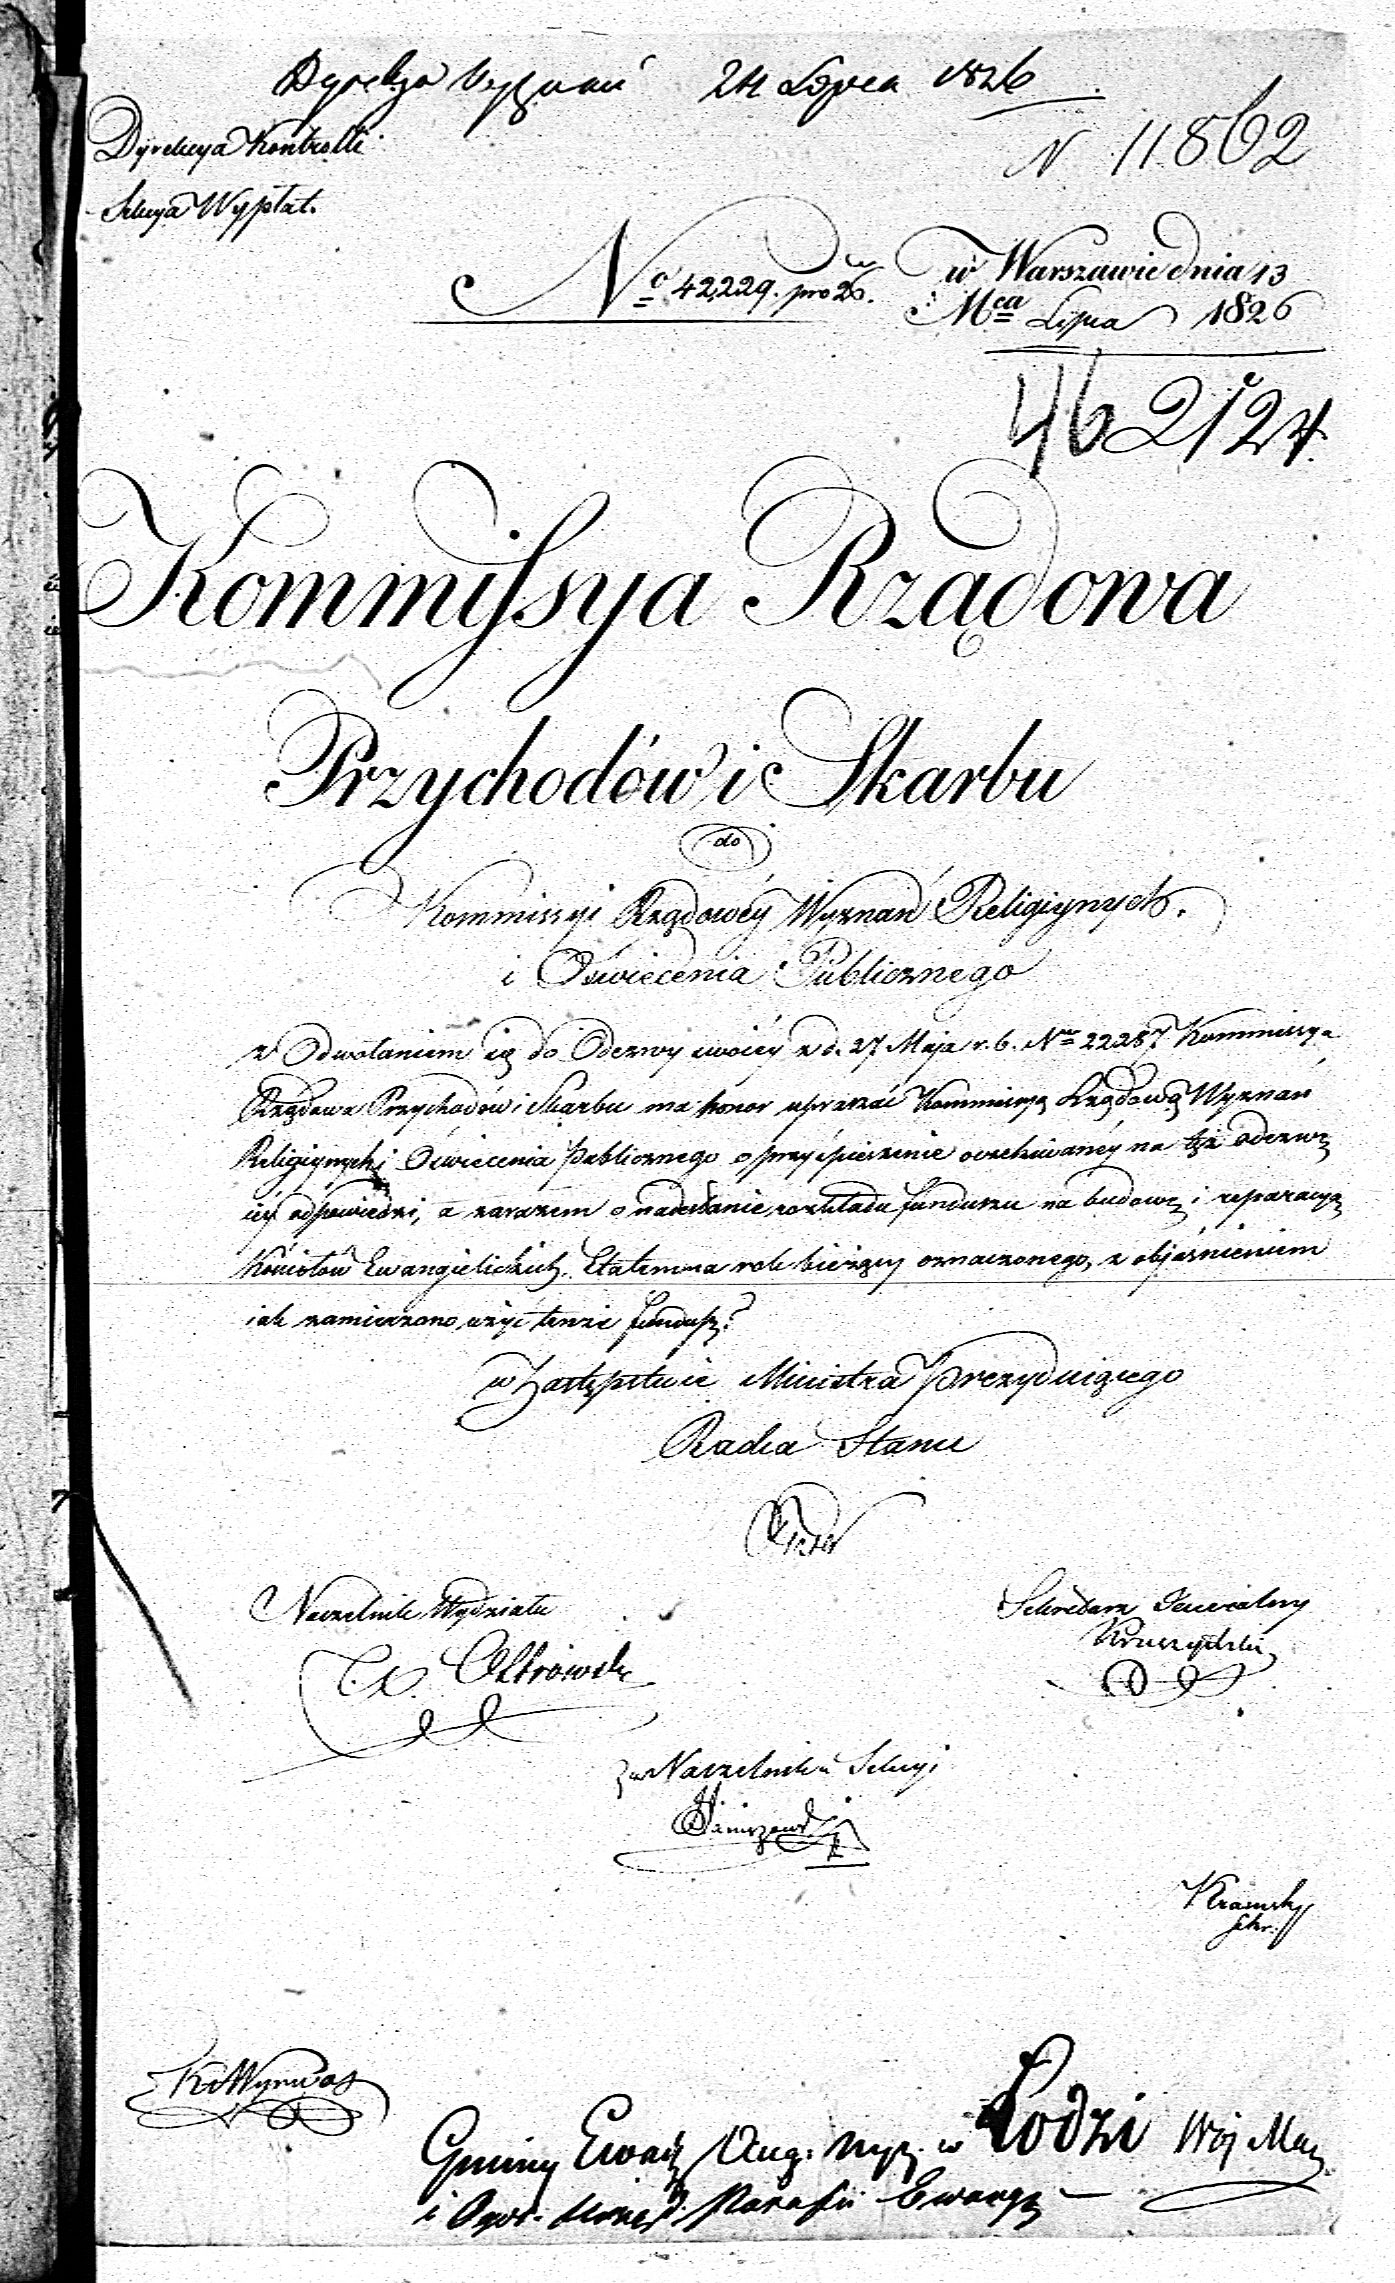 Dyrekcja Wyznań 24 Lipca 1826
N 11862
Dyrekcya Kontrolli
Sekcya Wypłat.
No 42,229. pro 26.
w Warszawie dnia 13
Mca Lipca 1826
46 2124
Kommissya Rządowa
Przychodów i Skarbu
do
Kommissyi Rządowéy Wyznań Religiynych
i Oświecenia Publicznego
z Odwołaniem się do Odezwy swoiéy z d. 27 Maja r. b. Nro 22287 Kommissya
Rządowa Przychodów i Skarbu ma honor upraszać Kommissyą Rządową Wyznań
Religiynych i Oświecenia Publicznego o przyśpieszenie oczekiwanéy na tęż odezwę
iéy odpowiedzi, a zarazem o nadesłanie rozkładu funduszu na budowę i reparacyą
Kościołów Ewangielickich, Etatem na rok bieżący oznaczonego, z objaśnieniem
iak zamierzono użyć tenże fundusz?
w Zastępstwie Ministra Prezyduiącego
Radca Stanu
Naczelnik Wydziału
Ostrowski
Sekretarz Jeneralny
Kruszyński
za Naczelnika Sekcyi
Skr.
Gminy Ewang. Aug. Wyz. w Łodzi Woj Maz
i Parafii Ewang